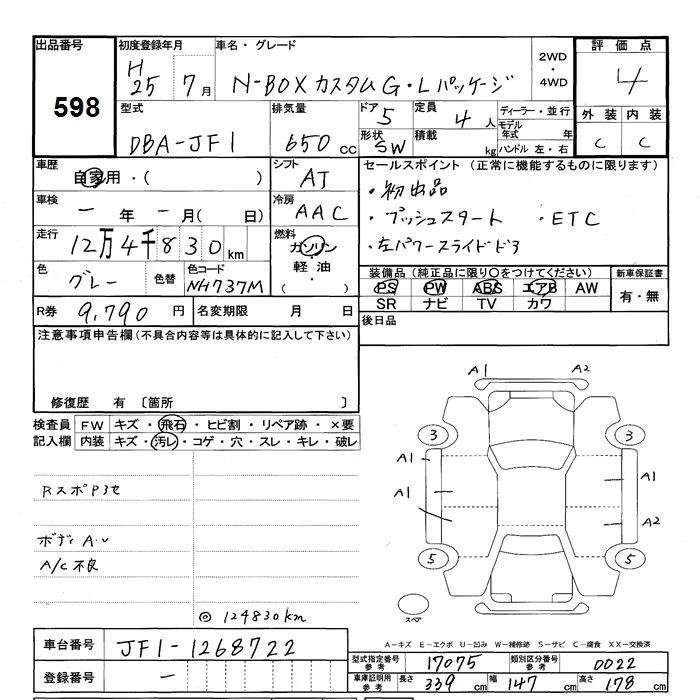 出品番号 初度登録年月 車名・グレード 2WD・4WD 評価点
598 H25 7月 N-BOXカスタムG・Lパッケージ 4
型式 排気量 ドア 5 定員 4人 ディーラー・並行 外装 内装
DBA-JF1 650cc 形状 SW 積載 kg モデル年式 年 C C
ハンドル 左・右
車歴 自家用・( ) シフト AT セールスポイント (正常に機能するものに限ります)
・初出品
車検 ー年ー月( 日) 冷房 AAC ・プッシュスタート ・ETC
走行 12万4千830km 燃料 ガソリン・軽油・( ) ・左パワースライドドア
色 グレー 色替 色コード NH737M 装備品(純正品に限り○をつけてください) 新車保証書
PS PW ABS エアB AW 有・無
SR ナビ TV カワ
R券 9,790円 名変期限 月 日 後日品
注意事項申告欄(不具合内容等は具体的に記入して下さい)
修復歴 有 〔箇所 〕
検査員 FW キズ・飛石・ヒビ割・リペア跡・×要
記入欄 内装 キズ・汚レ・コゲ・穴・スレ・キレ・破レ
A1 A2
3 3
A1 A1
RスポPヨセ
A1 A2
ボディA・U
A/C不良
5 5
スペア
◎124830km
A-キズ E-エクボ U-凹み W-補修跡 S-サビ C-腐食 XX-交換済
車台番号 JF1-1268722
型式指定番号 参考 17075 類別区分番号 参考 0022
登録番号 ー
車庫証明用 参考 長さ 339cm 幅 147cm 高さ 178cm